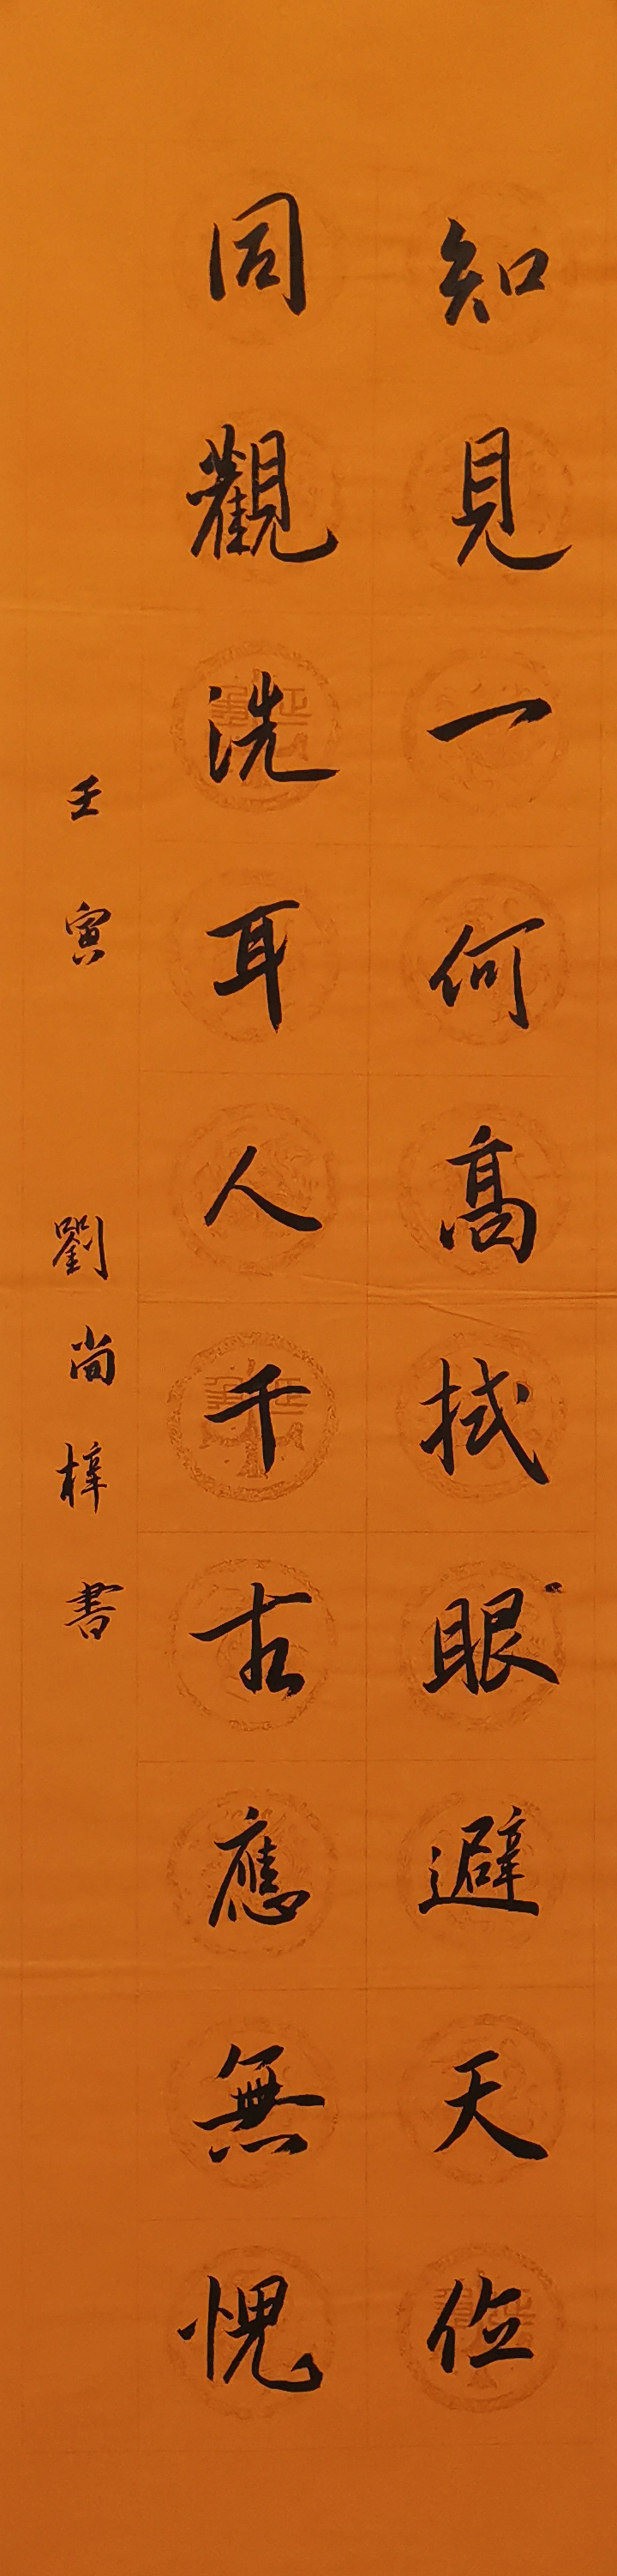 知見一何高拭眼避天位
同觀洗耳人千古應無愧
壬寅 劉尚梓書